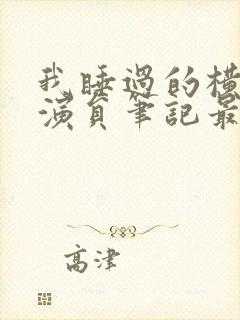 我睡過的橫
演員筆記最
高津